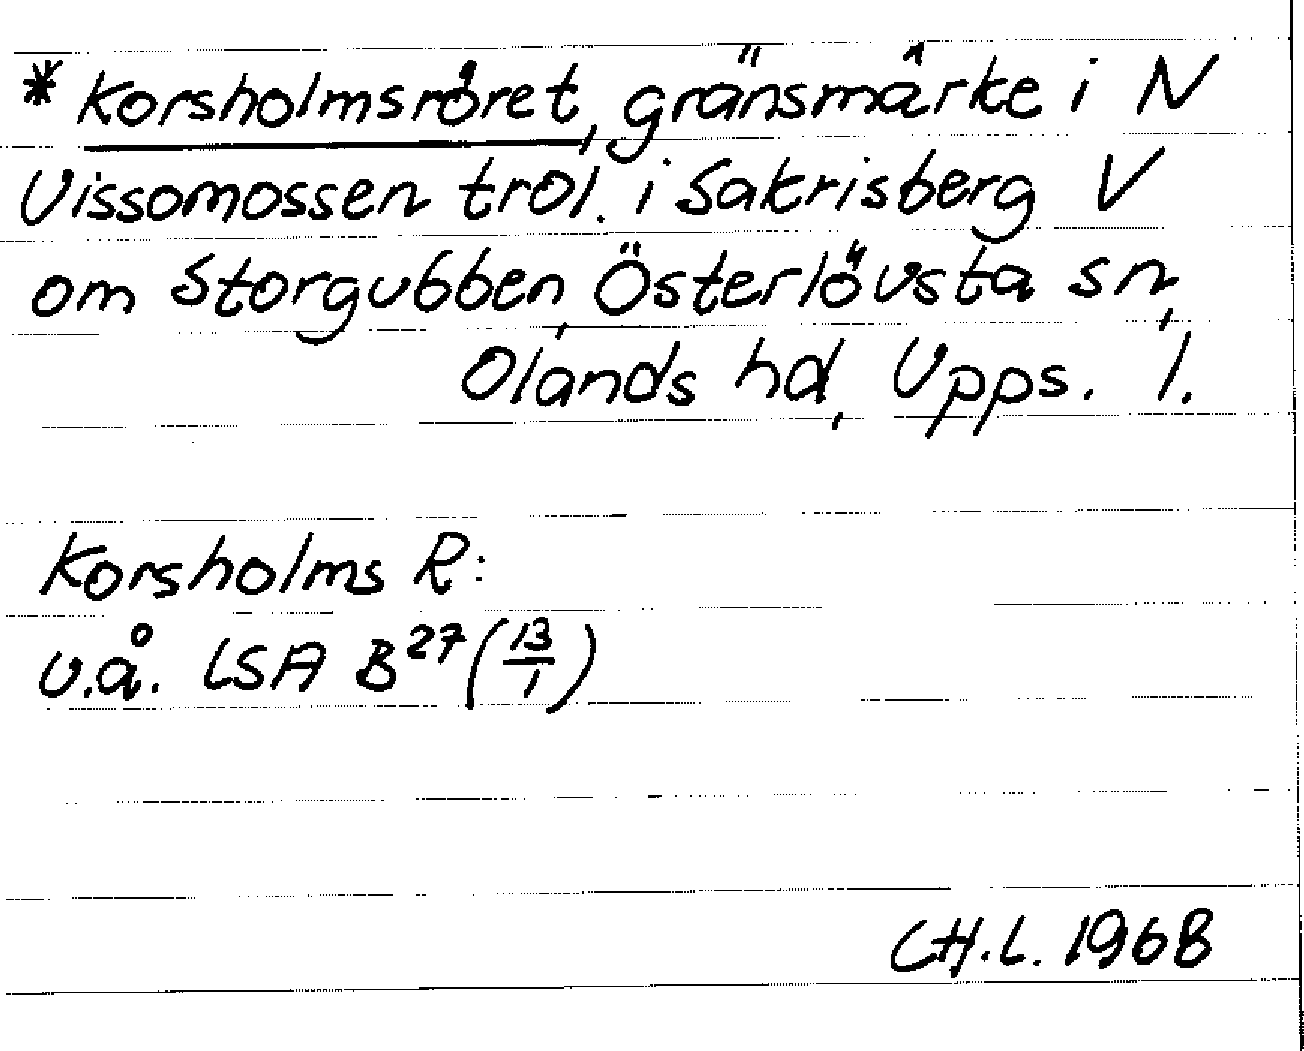 * Korsholmsröret, gränsmärke i N
Vissomossen trol. i Sakrisberg V
om Storgubben, Österlövsta sn,
Olands hd, Upps. l.
Korsholms R:
u.å. LSA B²⁷ (13/1)
CH.L. 1968